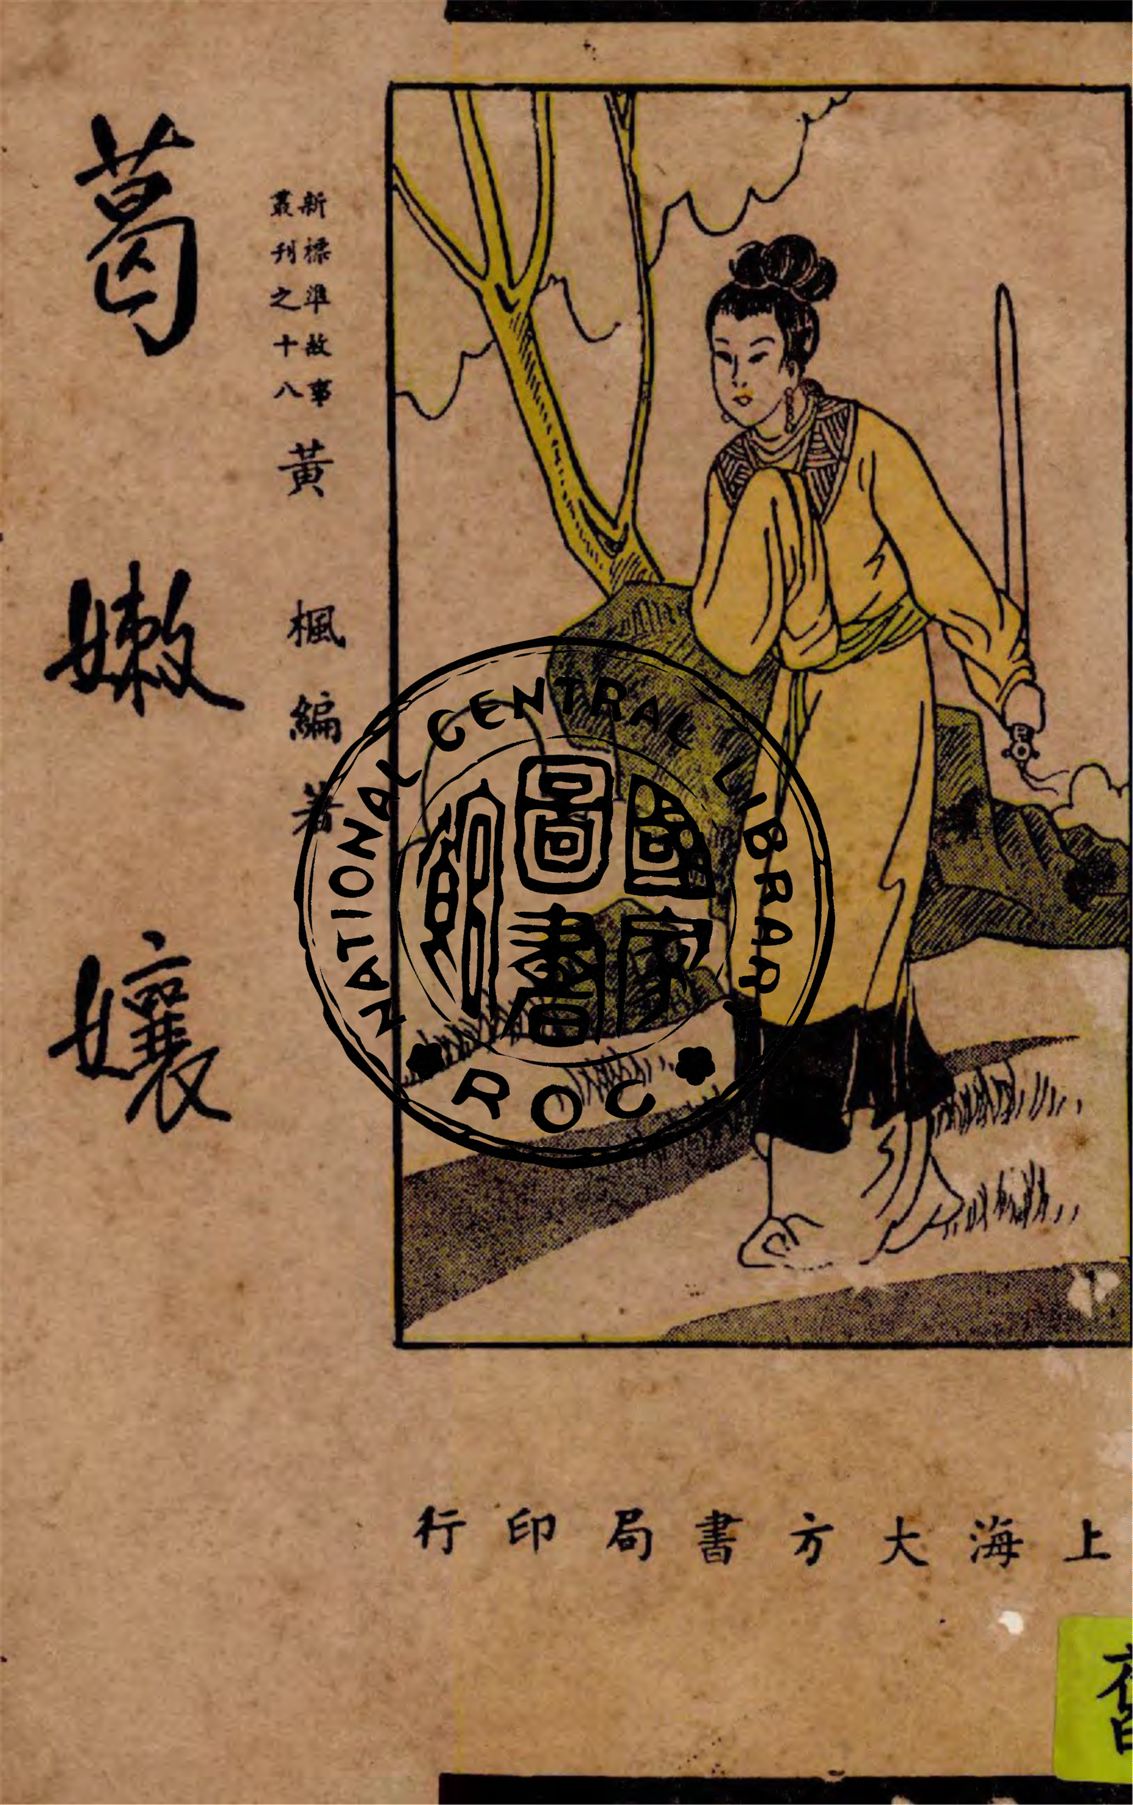 葛嫩孃
新標準故事
叢刊之十八
黃楓編著
NATIONAL CENTRAL LIBRARY
國家
圖書
館
ROC
上海大方書局印行